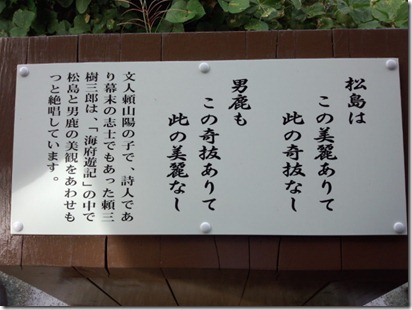 松島は
この美麗ありて
此の奇抜なし
男鹿も
この奇抜ありて
此の美麗なし
文人頼山陽の子で、詩人であ
り幕末の志士でもあった頼三
樹三郎は、「海府遊記」の中で
松島と男鹿の美観をあわせも
つと絶唱しています。